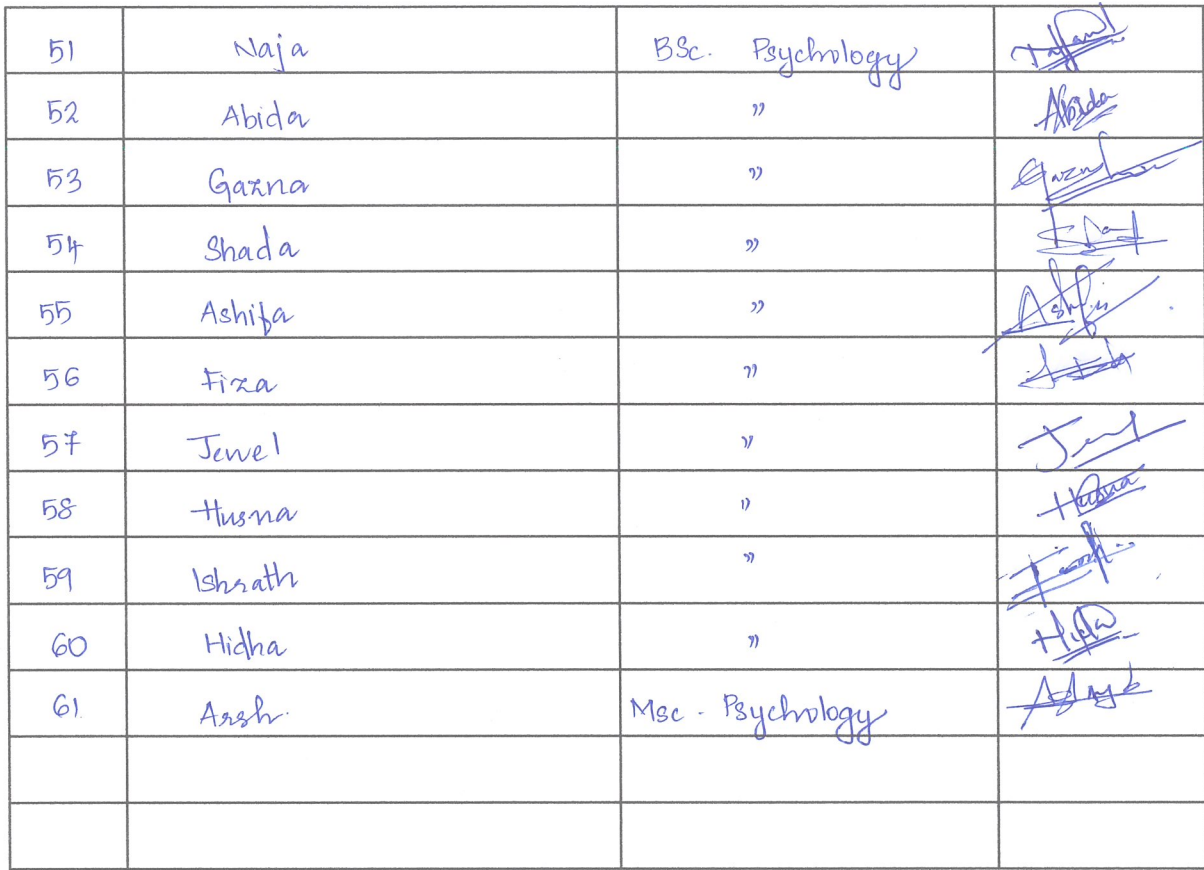 51 Naja BSc. Psychology
52 Abida " Abida
53 Gazna "
54 Shada "
55 Ashifa "
56 Fiza "
57 Jewel "
58 Husna " Husna
59 Ishrath "
60 Hidha "
61. Arsh. Msc - Psychology